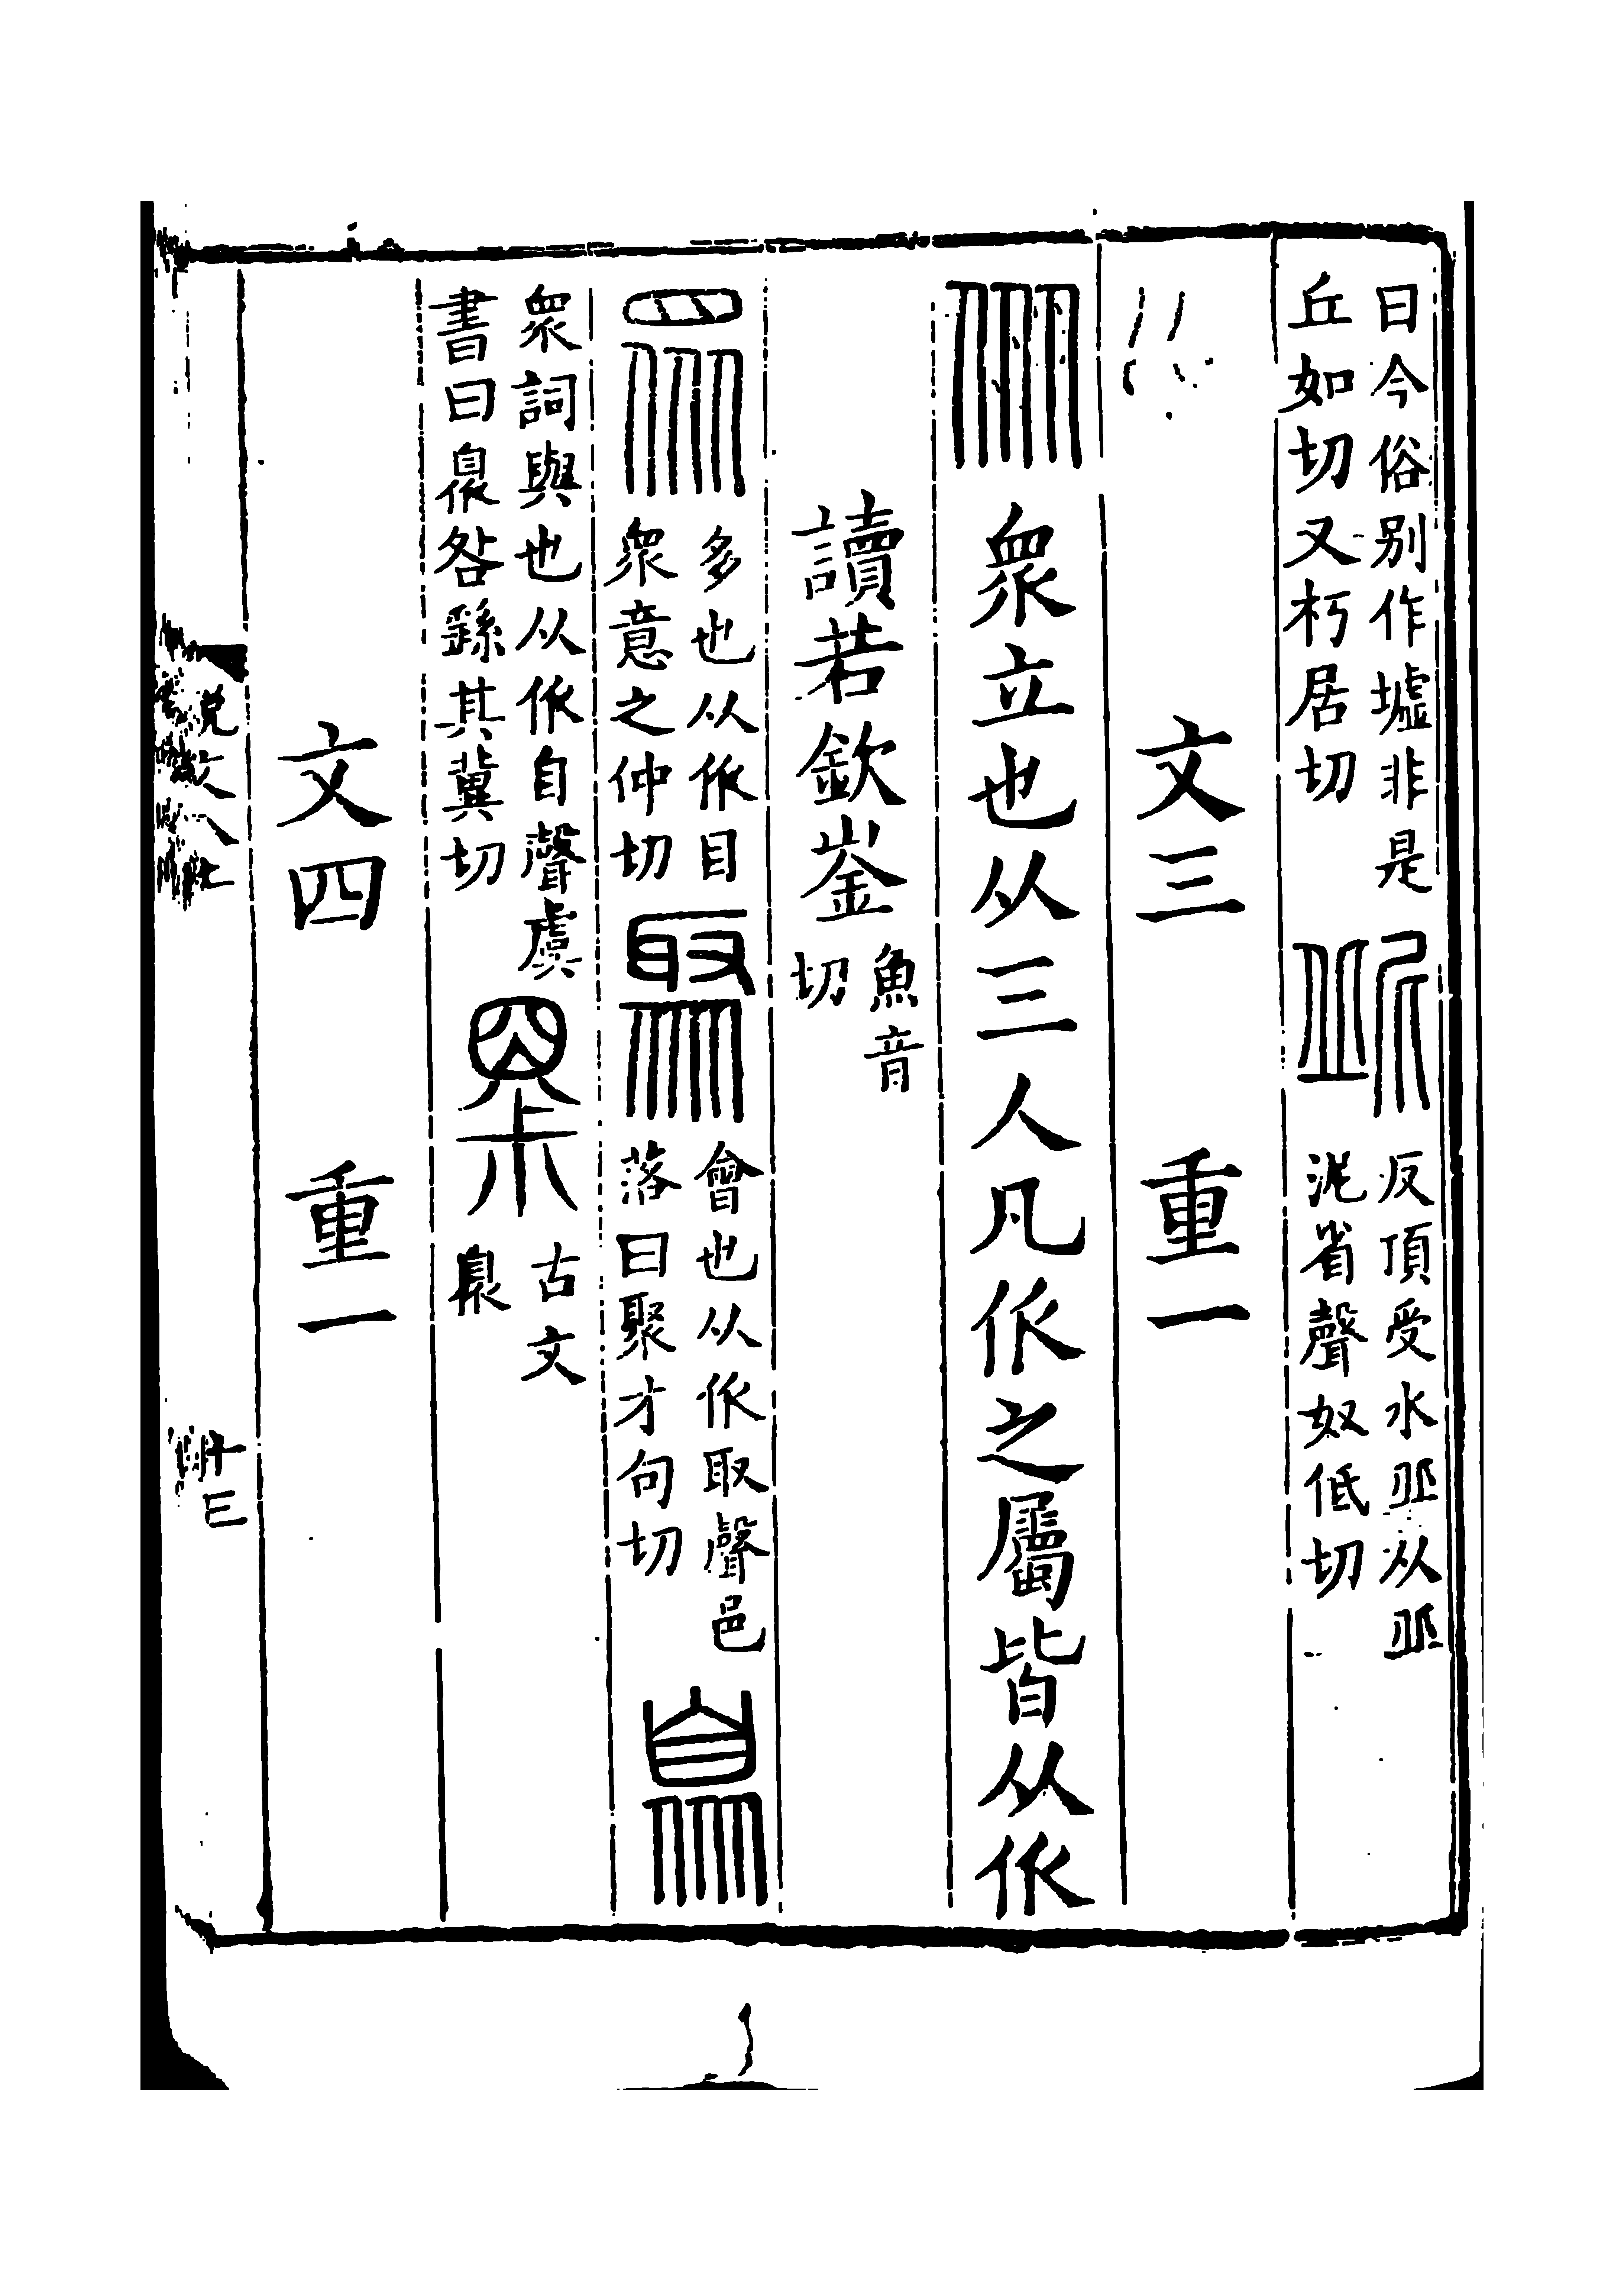 曰今俗别作墟非是
丘如切又朽居切
𡰥
反頂受水丠从丠
泥省聲奴低切
文三 重一
㐺 衆立也从三人凡㐺之屬皆从㐺
讀若欽崟 魚音切
衆
多也从㐺目
衆意之仲切
聚
會也从㐺取聲邑
落曰聚才句切
臮
衆詞與也从㐺自聲虞
書曰臮咎繇其冀切
古文
臮
文四 重一
説文八上
十三